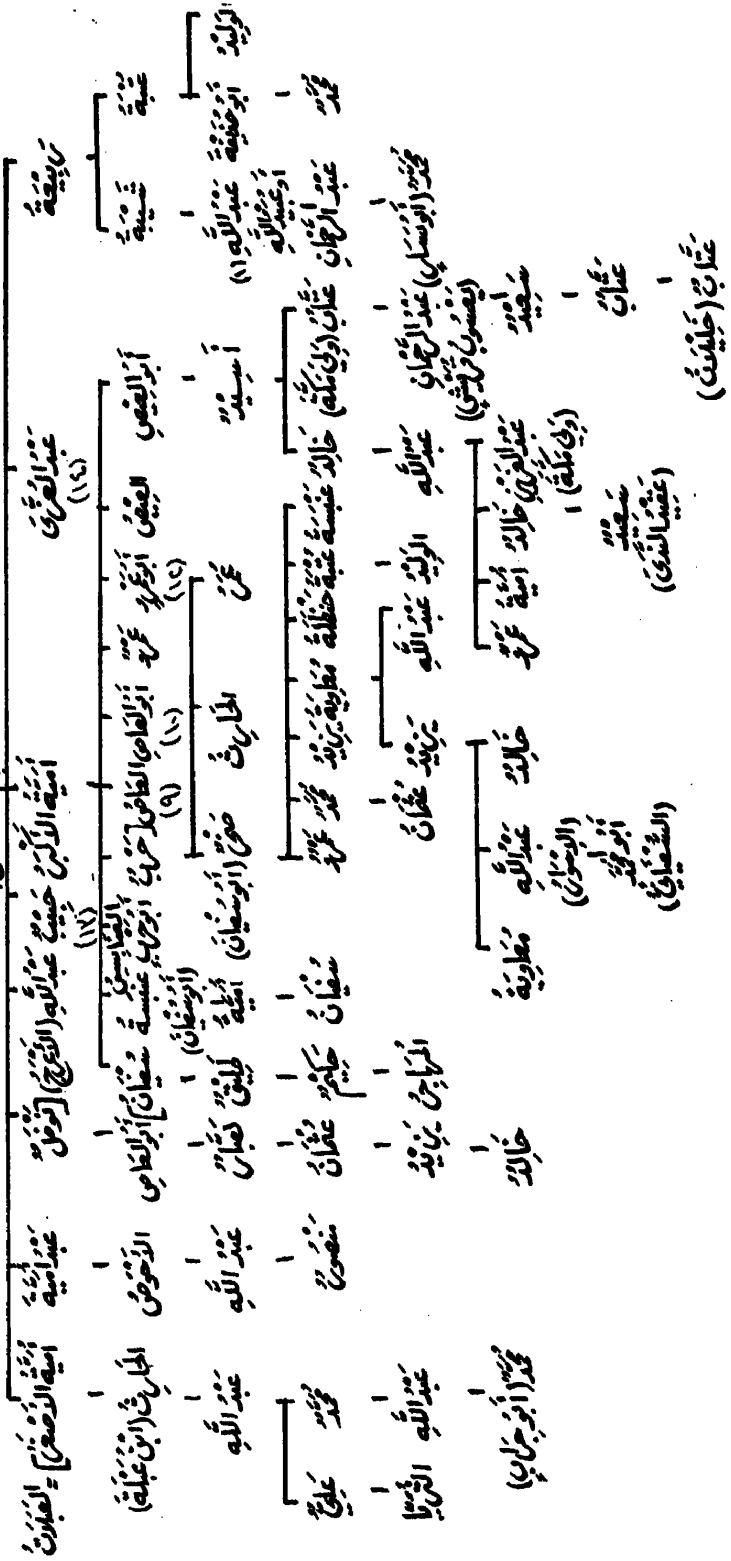 رَبِيعَةُ عَبْدُ العُزَّى (١٤) أُمَيَّةُ الأَكْبَرُ حَبِيبٌ (١٣) عَبْدُ اللهِ (الأَعْرَجُ) [نَوْفَلٌ عَبْدُ أُمَيَّةَ أُمَيَّةُ الأَصْغَرُ] = العَبَلَاتُ
عُتْبَةُ شَيْبَةُ أَبُو العِيصِ العِيصُ أَبُو عَمْرٍو (١٢) عَمْرٌو أَبُو العَاصِي (١٠) العَاصِي (٩) [حَرْبٌ أَبُو حَرْبٍ عَنْبَسَةُ سُفْيَانُ] العَنَابِسُ أَبُو العَاصِي الأَحْوَصُ الحَارِثُ (ابْنُ عَبْلَةَ)
الوَلِيدُ أَبُو حُذَيْفَةَ عَبْدُ اللهِ (١) أو عُبَيْدُ اللهِ أَسِيدٌ عُمَرُ الحَارِثُ صَخْرٌ (أَبُو سُفْيَانَ) أُمَيَّةُ (أَبُو سُفْيَانَ) طَلِيقٌ عَبْدُ اللهِ عَبْدُ اللهِ
مُحَمَّدٌ عَبْدُ الرَّحْمَانِ عَتَّابٌ (وَلِيَ مَكَّةَ) خَالِدٌ عَنْبَسَةُ عُتْبَةُ حَنْظَلَةُ مُعَاوِيَةُ يَزِيدُ مُحَمَّدٌ عَمْرٌو سُفْيَانُ حَكِيمٌ عُثْمَانُ مَنْصُورٌ مُحَمَّدٌ عَلِيٌّ
مُحَمَّدٌ عَبْدُ الرَّحْمَانِ (يَعْسُوبُ قُرَيْشٍ) عَبْدُ اللهِ الوَلِيدُ عَبْدُ اللهِ يَزِيدُ عُثْمَانُ المُهَاجِرُ يَزِيدُ عَبْدُ اللهِ الثُّرَيَّا
سَعِيدٌ عَبْدُ العَزِيزِ (وَلِيَ مَكَّةَ) خَالِدٌ أُمَيَّةُ عَمْرٌو خَالِدٌ عَبْدُ اللهِ أَبُو مُحَمَّدٍ (السُّفْيَانِيُّ) مُعَاوِيَةُ خَالِدٌ مُحَمَّدٌ (أَبُو جِرَابٍ)
عَتَّابٌ سَعِيدٌ (عَقِيدُ النَّدَى)
عَتَّابٌ